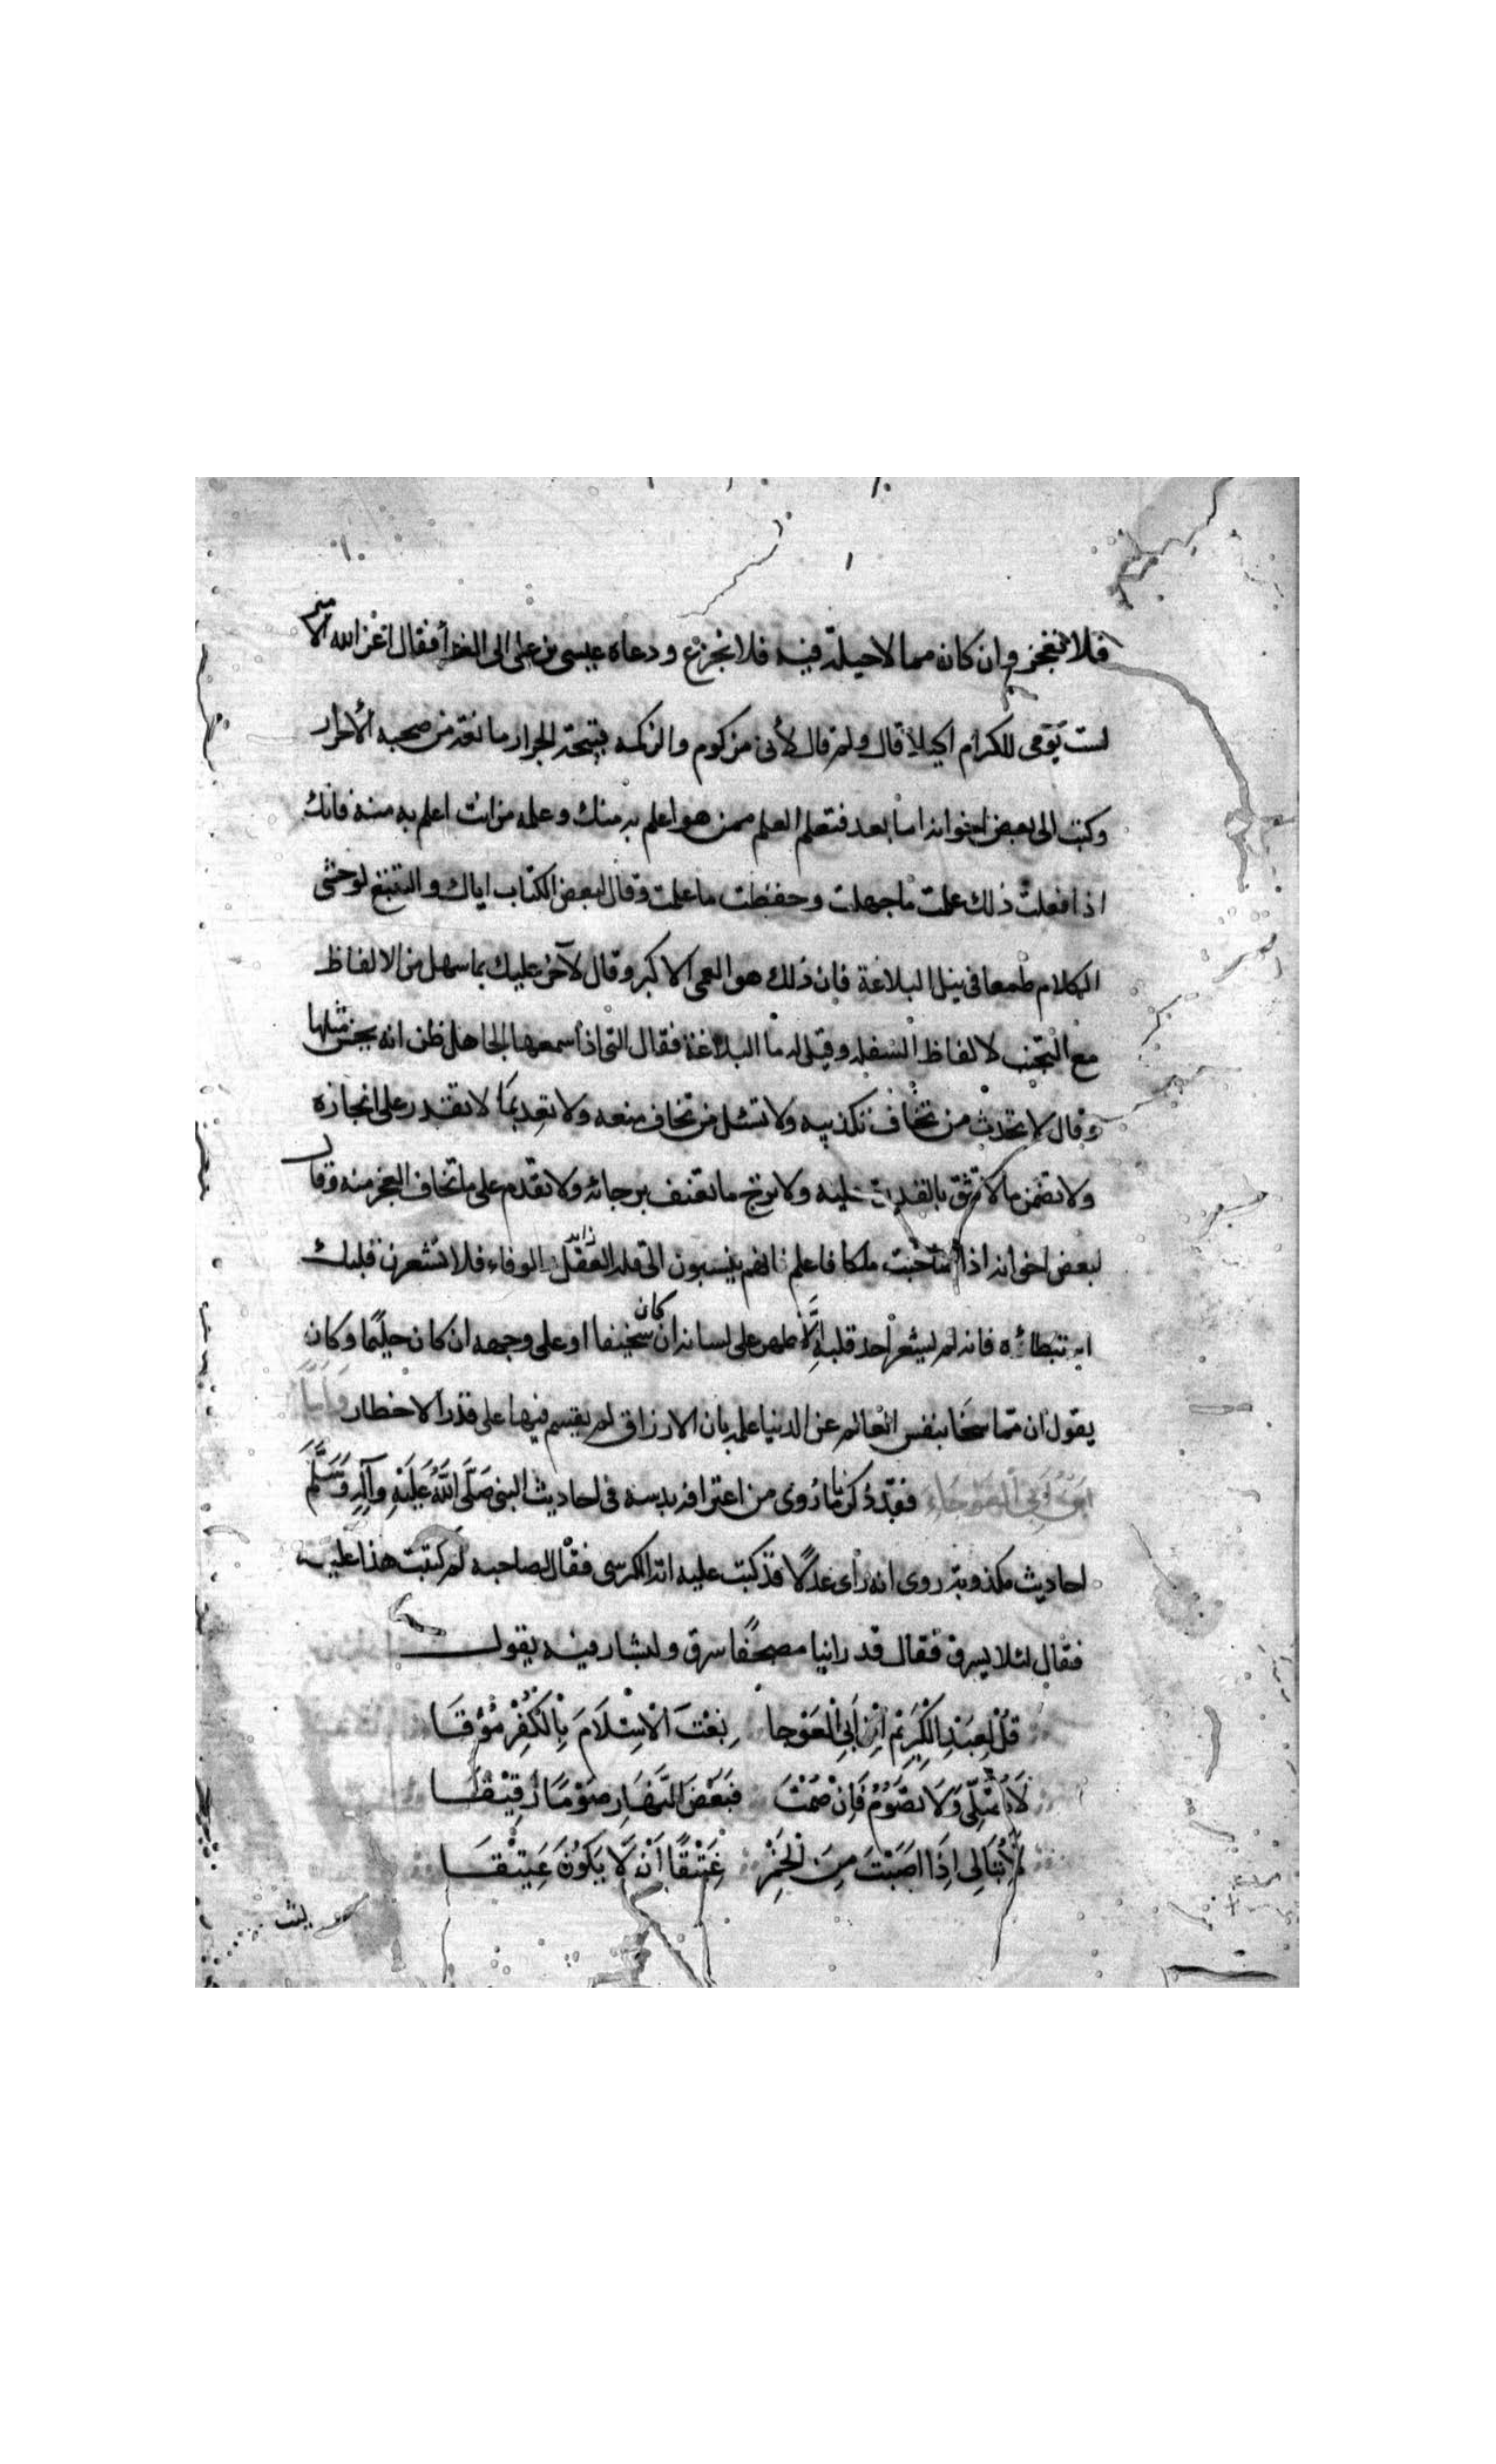 فلا تعجز وان كان مما لا حيلة فيه فلا تجزع ودعاه عيسى بن على الى الغداء فقال اعز الله الامير
لست يومى للكرام اكيلا قال ولم قال لأنى مزكوم والزكمة قبيحة الجوار مانعة من صحبة الأحرار
وكتب الى بعض اخوانه اما بعد فتعلم العلم ممن هو اعلم به منك وعلمه من انت اعلم به منه فانك
اذا فعلت ذلك علمت ما جهلت وحفظت ما علمت وقال لبعض الكتاب اياك والتتبع لوحشى
الكلام طمعا فى نيل البلاغة فان ذلك هو العى الاكبر وقال لآخر عليك بما سهل من الالفاظ
مع التجنب لالفاظ السفلة وقيل له ما البلاغة فقال التى اذا سمعها الجاهل ظن انه يحسن مثلها
وقال لا تحدث من تخاف تكذيبه ولا تسئل من تخاف منعه ولا تعد بما لا تقدر على انجازه
ولا تضمن ما لا تثق بالقدرة عليه ولا ترج ما تعنف برجائه ولا تقدم على ما تخاف العجز منه وقال
لبعض اخوانه اذا صاحبت ملكا فاعلم انهم ينسبون الى قلة الوفاء فلا تشعرن قلبك
استبطاءه فانه لم يشعر احد قلبه الا ظهر على لسانه ان كان سخيفا او على وجهه ان كان حليما وكان
يقول ان مما سخا بنفس العالم عن الدنيا علمه بان الارزاق لم يقسم فيها على قدر الاخطار وَاَمَّا
ابْنُ اَبِى الْعَوْجَاءِ فقد ذكرنا ما رُوى من اعترافه بدسه فى احاديث النبى صَلَّى اللهُ عَلَيْهِ وَآلِهِ وَسَلَّمَ
احاديث مكذوبة روى انه رأى عدلًا قد كتبت عليه اية الكرسى فقال لصاحبه لم كتبت هذا عليه
فقال لئلا يسرق فقال قد راينا مصحفًا سرق ولبشار فيه يقول
قُلْ لِعَبْدِ الْكَرِيْمِ ابْنِ اَبِى الْعَوْجا بِعْتَ الْاِسْلَامَ بِالْكُفْرِ مُوْقَـا
لَا تُصَلِّى وَلَا تَصُوْمُ فَاِنْ صُمْتَ فَبَعْضَ النَّهَارِ صَوْمًا رَقِيْقَـا
لَا تُبَالِى اِذَا اَصَبْتَ مِنَ الْخَمْرِ عَتِيْقًا اَنْ لَا يَكُوْنَ عَتِيْقَـا
ليت